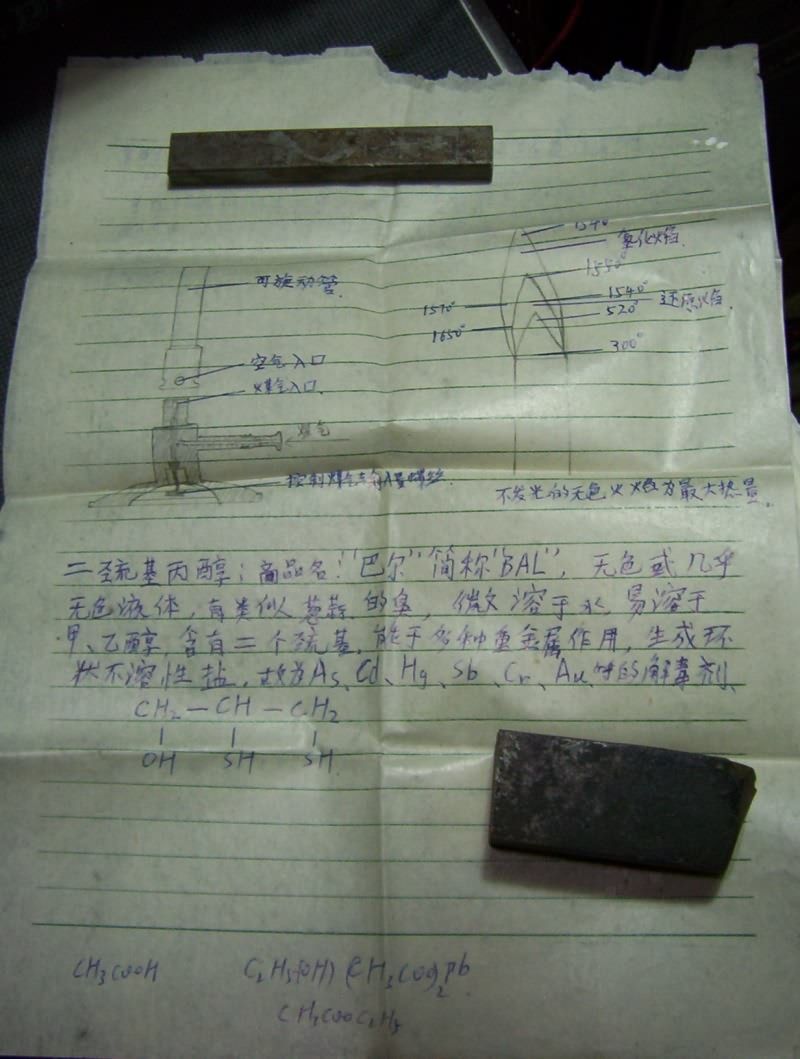 可旋动管
空气入口
煤气入口
煤气
控制煤气气入量螺丝
1540°
氧化焰
1550°
1540°
还原焰
1570°
520°
1650°
300°
不发光的无色火焰为最大热量。
二巯基丙醇；商品名："巴尔"简称"BAL"，无色或几乎
无色液体，有类似葱蒜的臭，微溶于水易溶于
甲、乙醇，含有二个巯基，能于各种重金属作用，生成环
状不溶性盐，故为As、Cd、Hg、Sb、Cr、Au等的解毒剂、
CH2—CH—CH2
OH SH SH
CH3COOH C2H5(OH) (CH3COO)2Pb
CH3COOC2H5